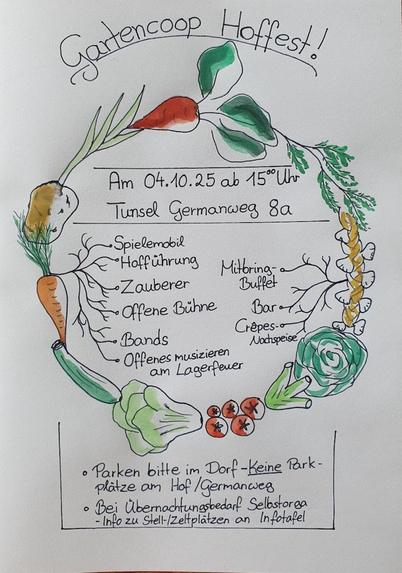 Gartencoop Hoffest!
Am 04.10.25 ab 15°° Uhr
Tunsel Germanweg 8a
Spielemobil
Hofführung
Zauberer
Offene Bühne
Bands
Offenes musizieren
am Lagerfeuer
Mitbring-
Buffet
Bar
Crêpes-
Nachspeise
• Parken bitte im Dorf-Keine Park-
plätze am Hof/Germanweg
• Bei Übernachtungsbedarf Selbstorga
-Info zu Stell-/Zeltplätzen an Infotafel